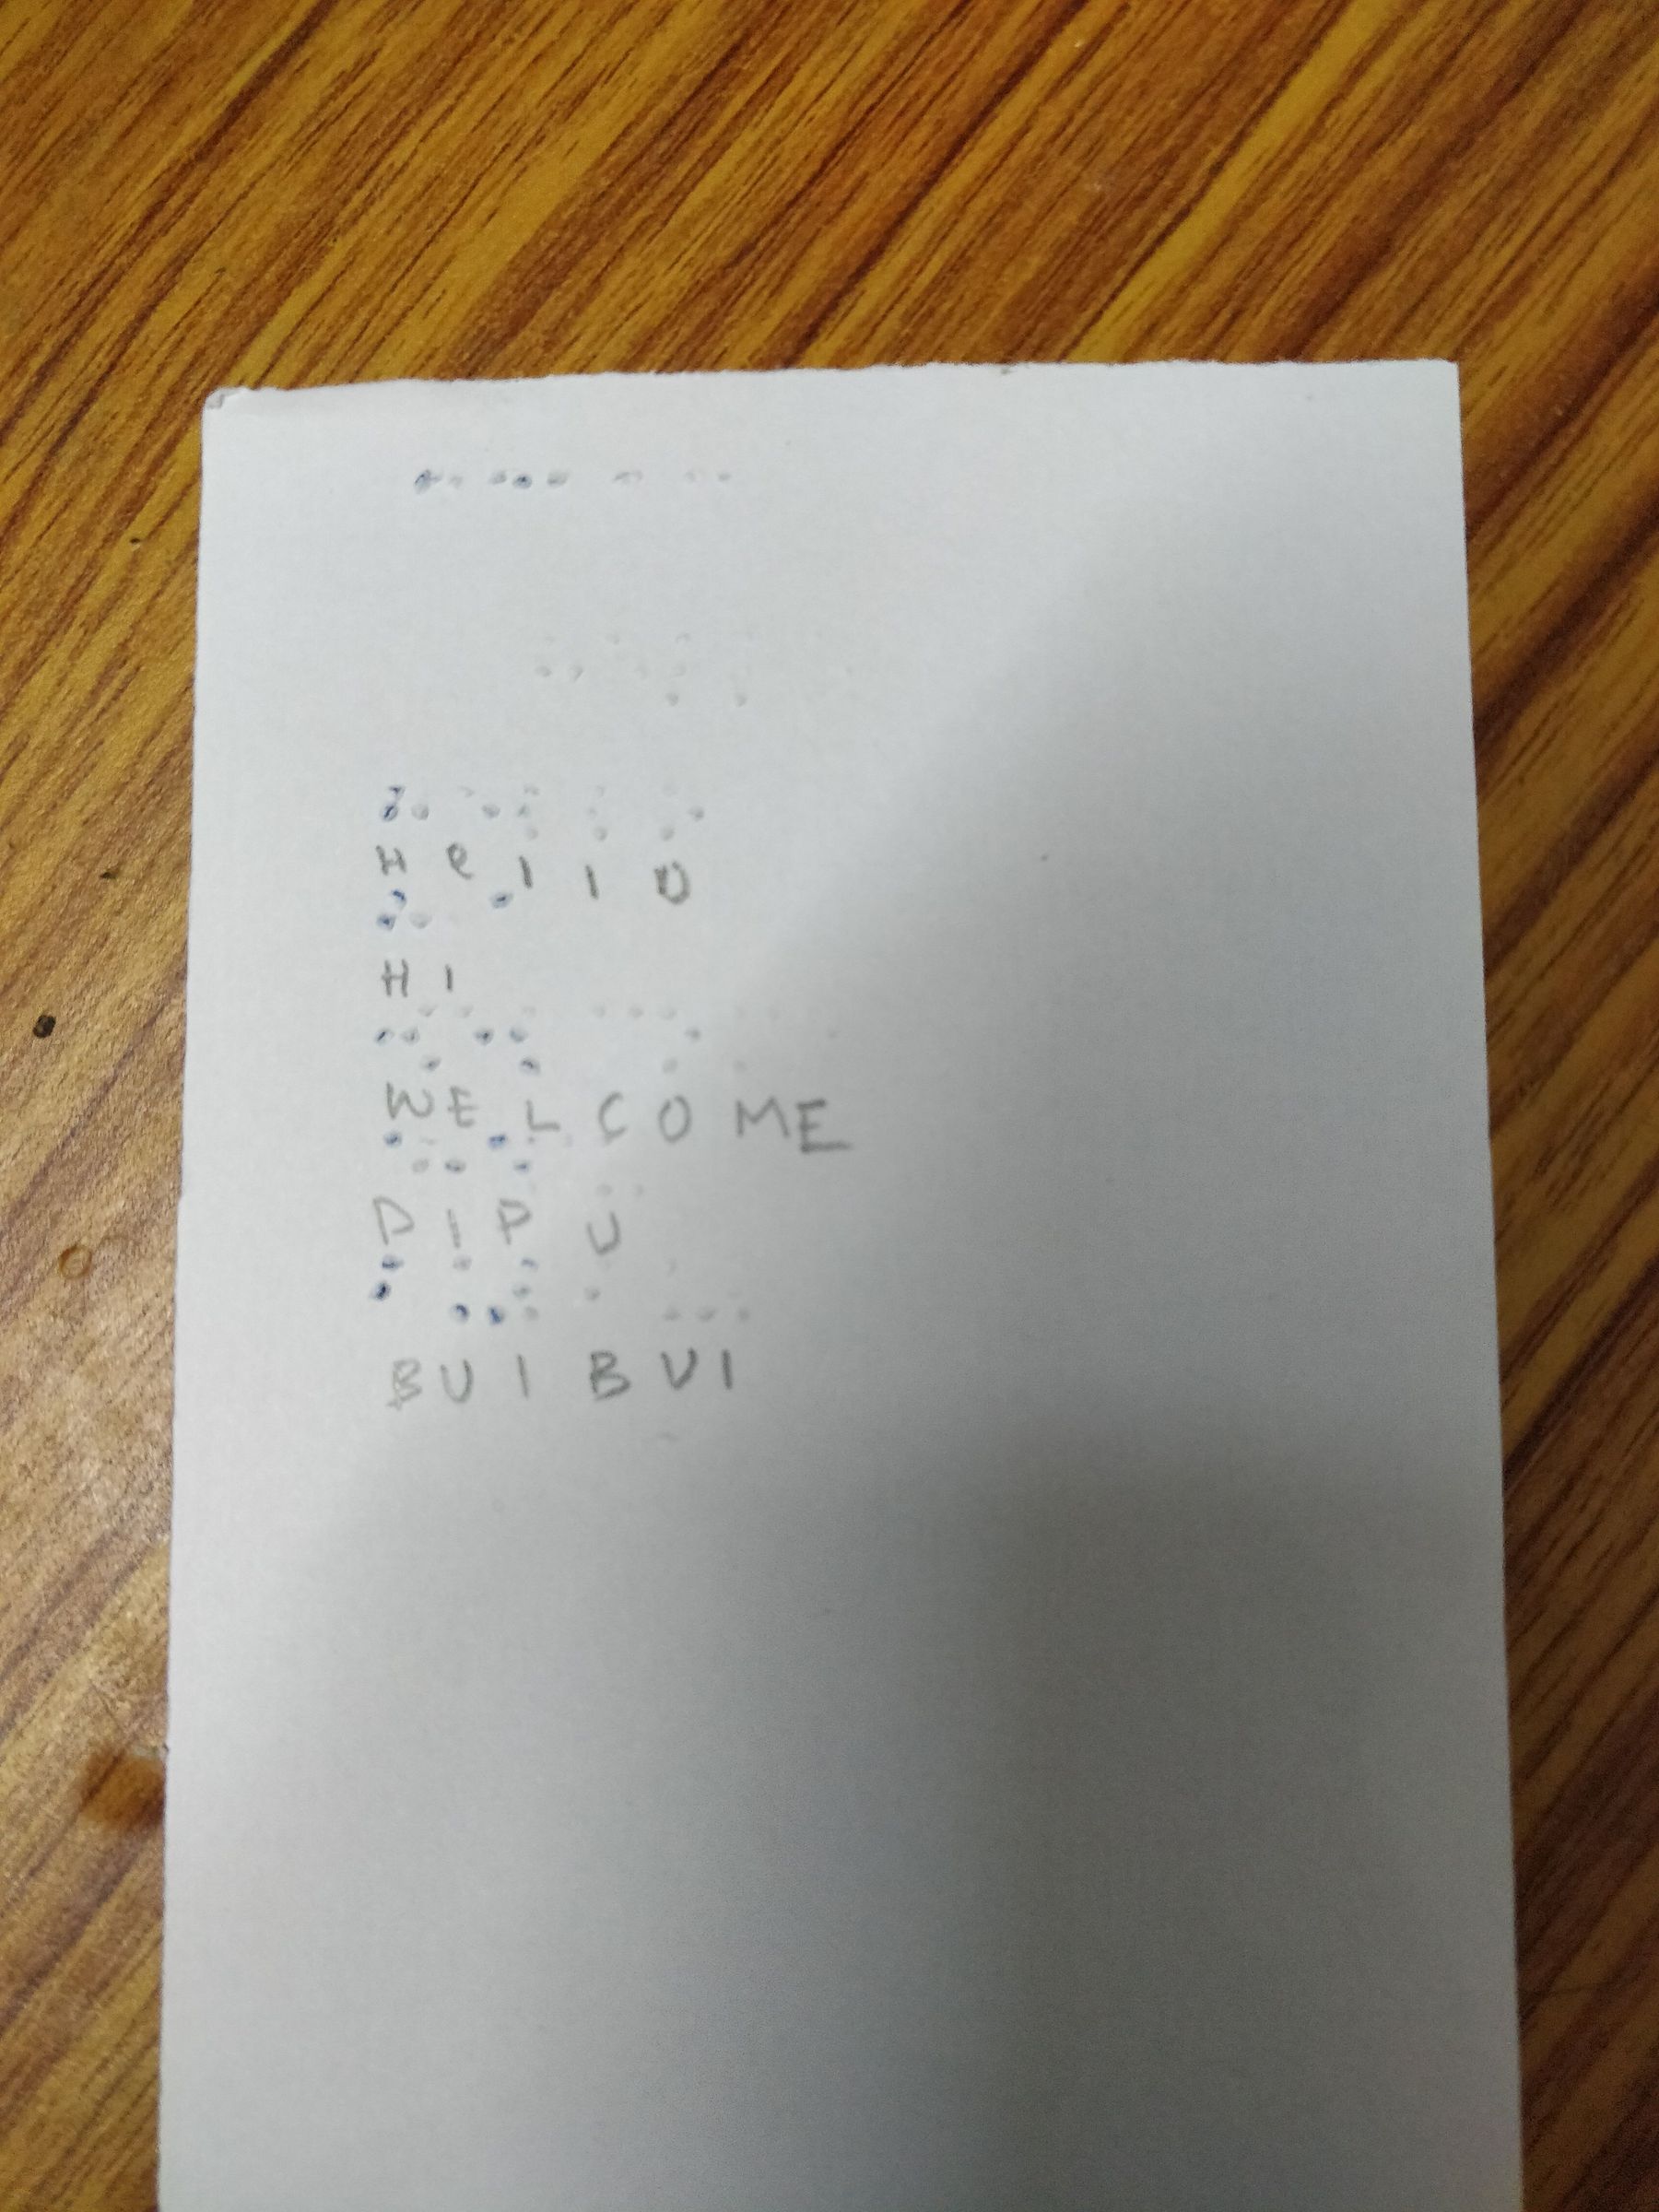 H e l l O
H I
W E L C O M E
D I P U
B U I B U I